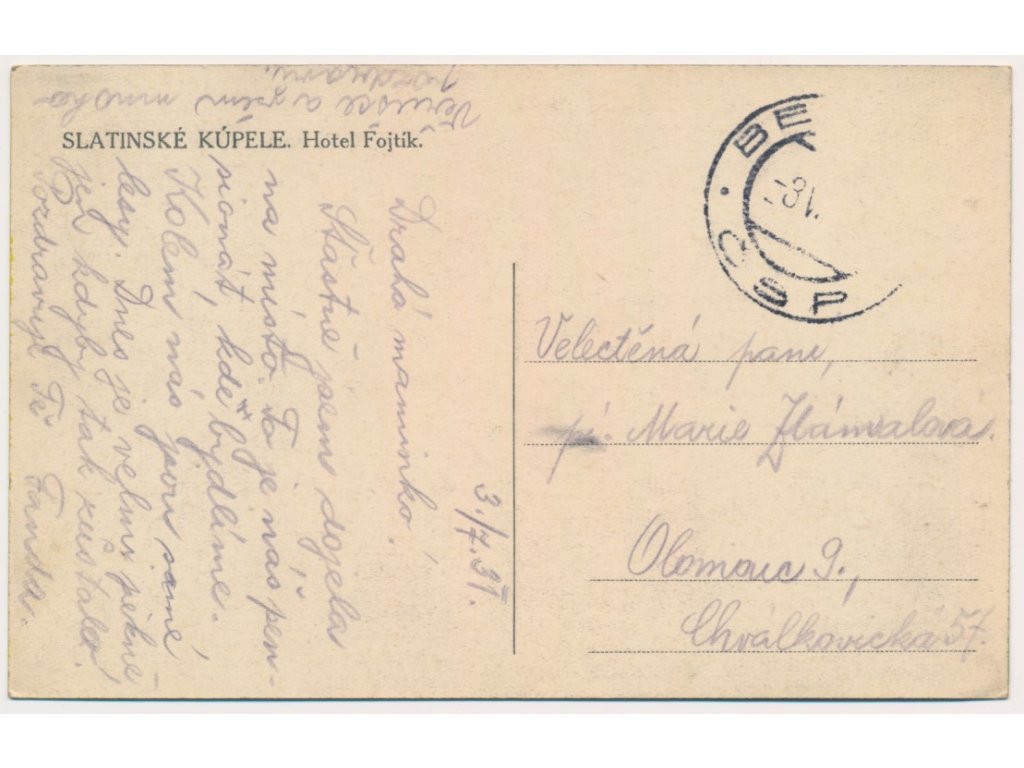 SLATINSKÉ KÚPELE. Hotel Fojtík.
3./7.31.
Drahá maminko!
Šťastně jsem dojela
na místo. To je náš pen-
sionát, kde bydlíme.
Kolem nás jsou samé
lesy. Dnes je velmi pěkně,
jen kdyby tak zůstalo!
Pozdravuji Tě Fanda.
Verušce a všem mnoho
pozdravů.
BE
-3 V.
ČSP
Velectěná paní,
pí. Marie
Olomouc 9.,
Chválkovická 57.